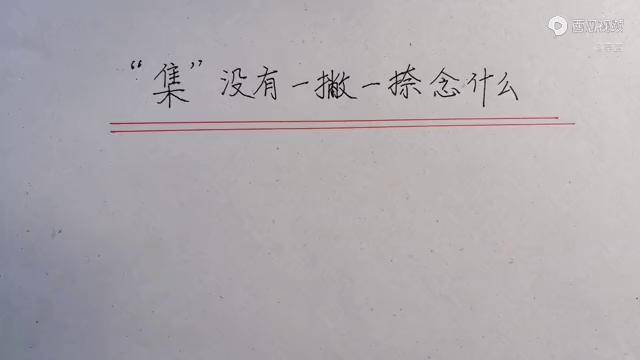 西瓜视频
“集”没有一撇一捺念什么